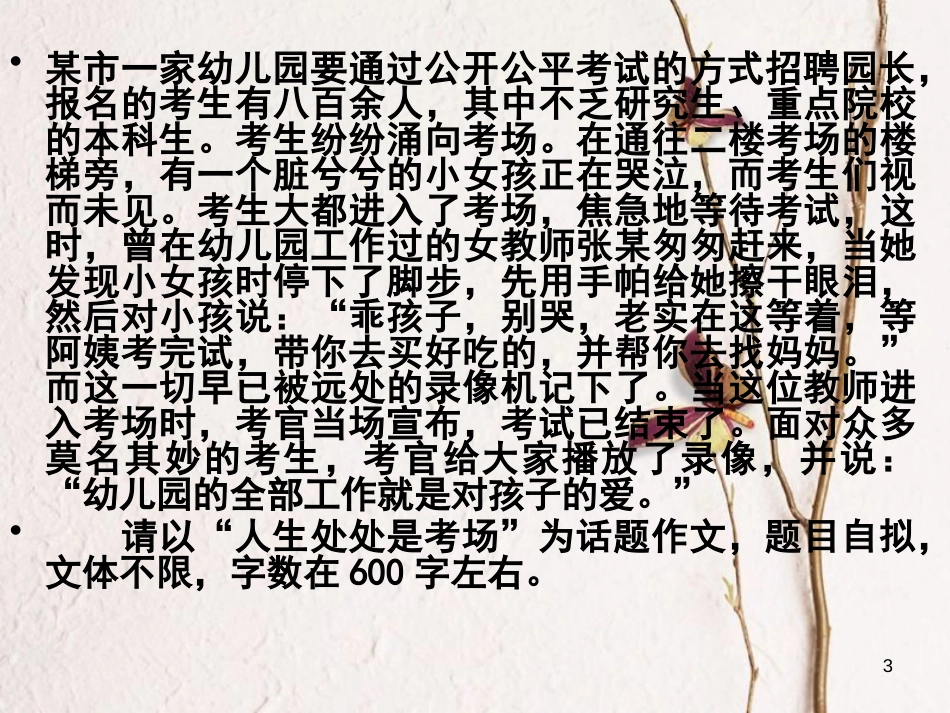 • 某市一家幼儿园要通过公开公平考试的方式招聘园长，
报名的考生有八百余人，其中不乏研究生、重点院校
的本科生。考生纷纷涌向考场。在通往二楼考场的楼
梯旁，有一个脏兮兮的小女孩正在哭泣，而考生们视
而未见。考生大都进入了考场，焦急地等待考试，这
时，曾在幼儿园工作过的女教师张某匆匆赶来，当她
发现小女孩时停下了脚步，先用手帕给她擦干眼泪，
然后对小孩说：“乖孩子，别哭，老实在这等着，等
阿姨考完试，带你去买好吃的，并帮你去找妈妈。”
而这一切早已被远处的录像机记下了。当这位教师进
入考场时，考官当场宣布，考试已结束了。面对众多
莫名其妙的考生，考官给大家播放了录像，并说：
“幼儿园的全部工作就是对孩子的爱。”
• 请以“人生处处是考场”为话题作文，题目自拟，
文体不限，字数在 600 字左右。
3